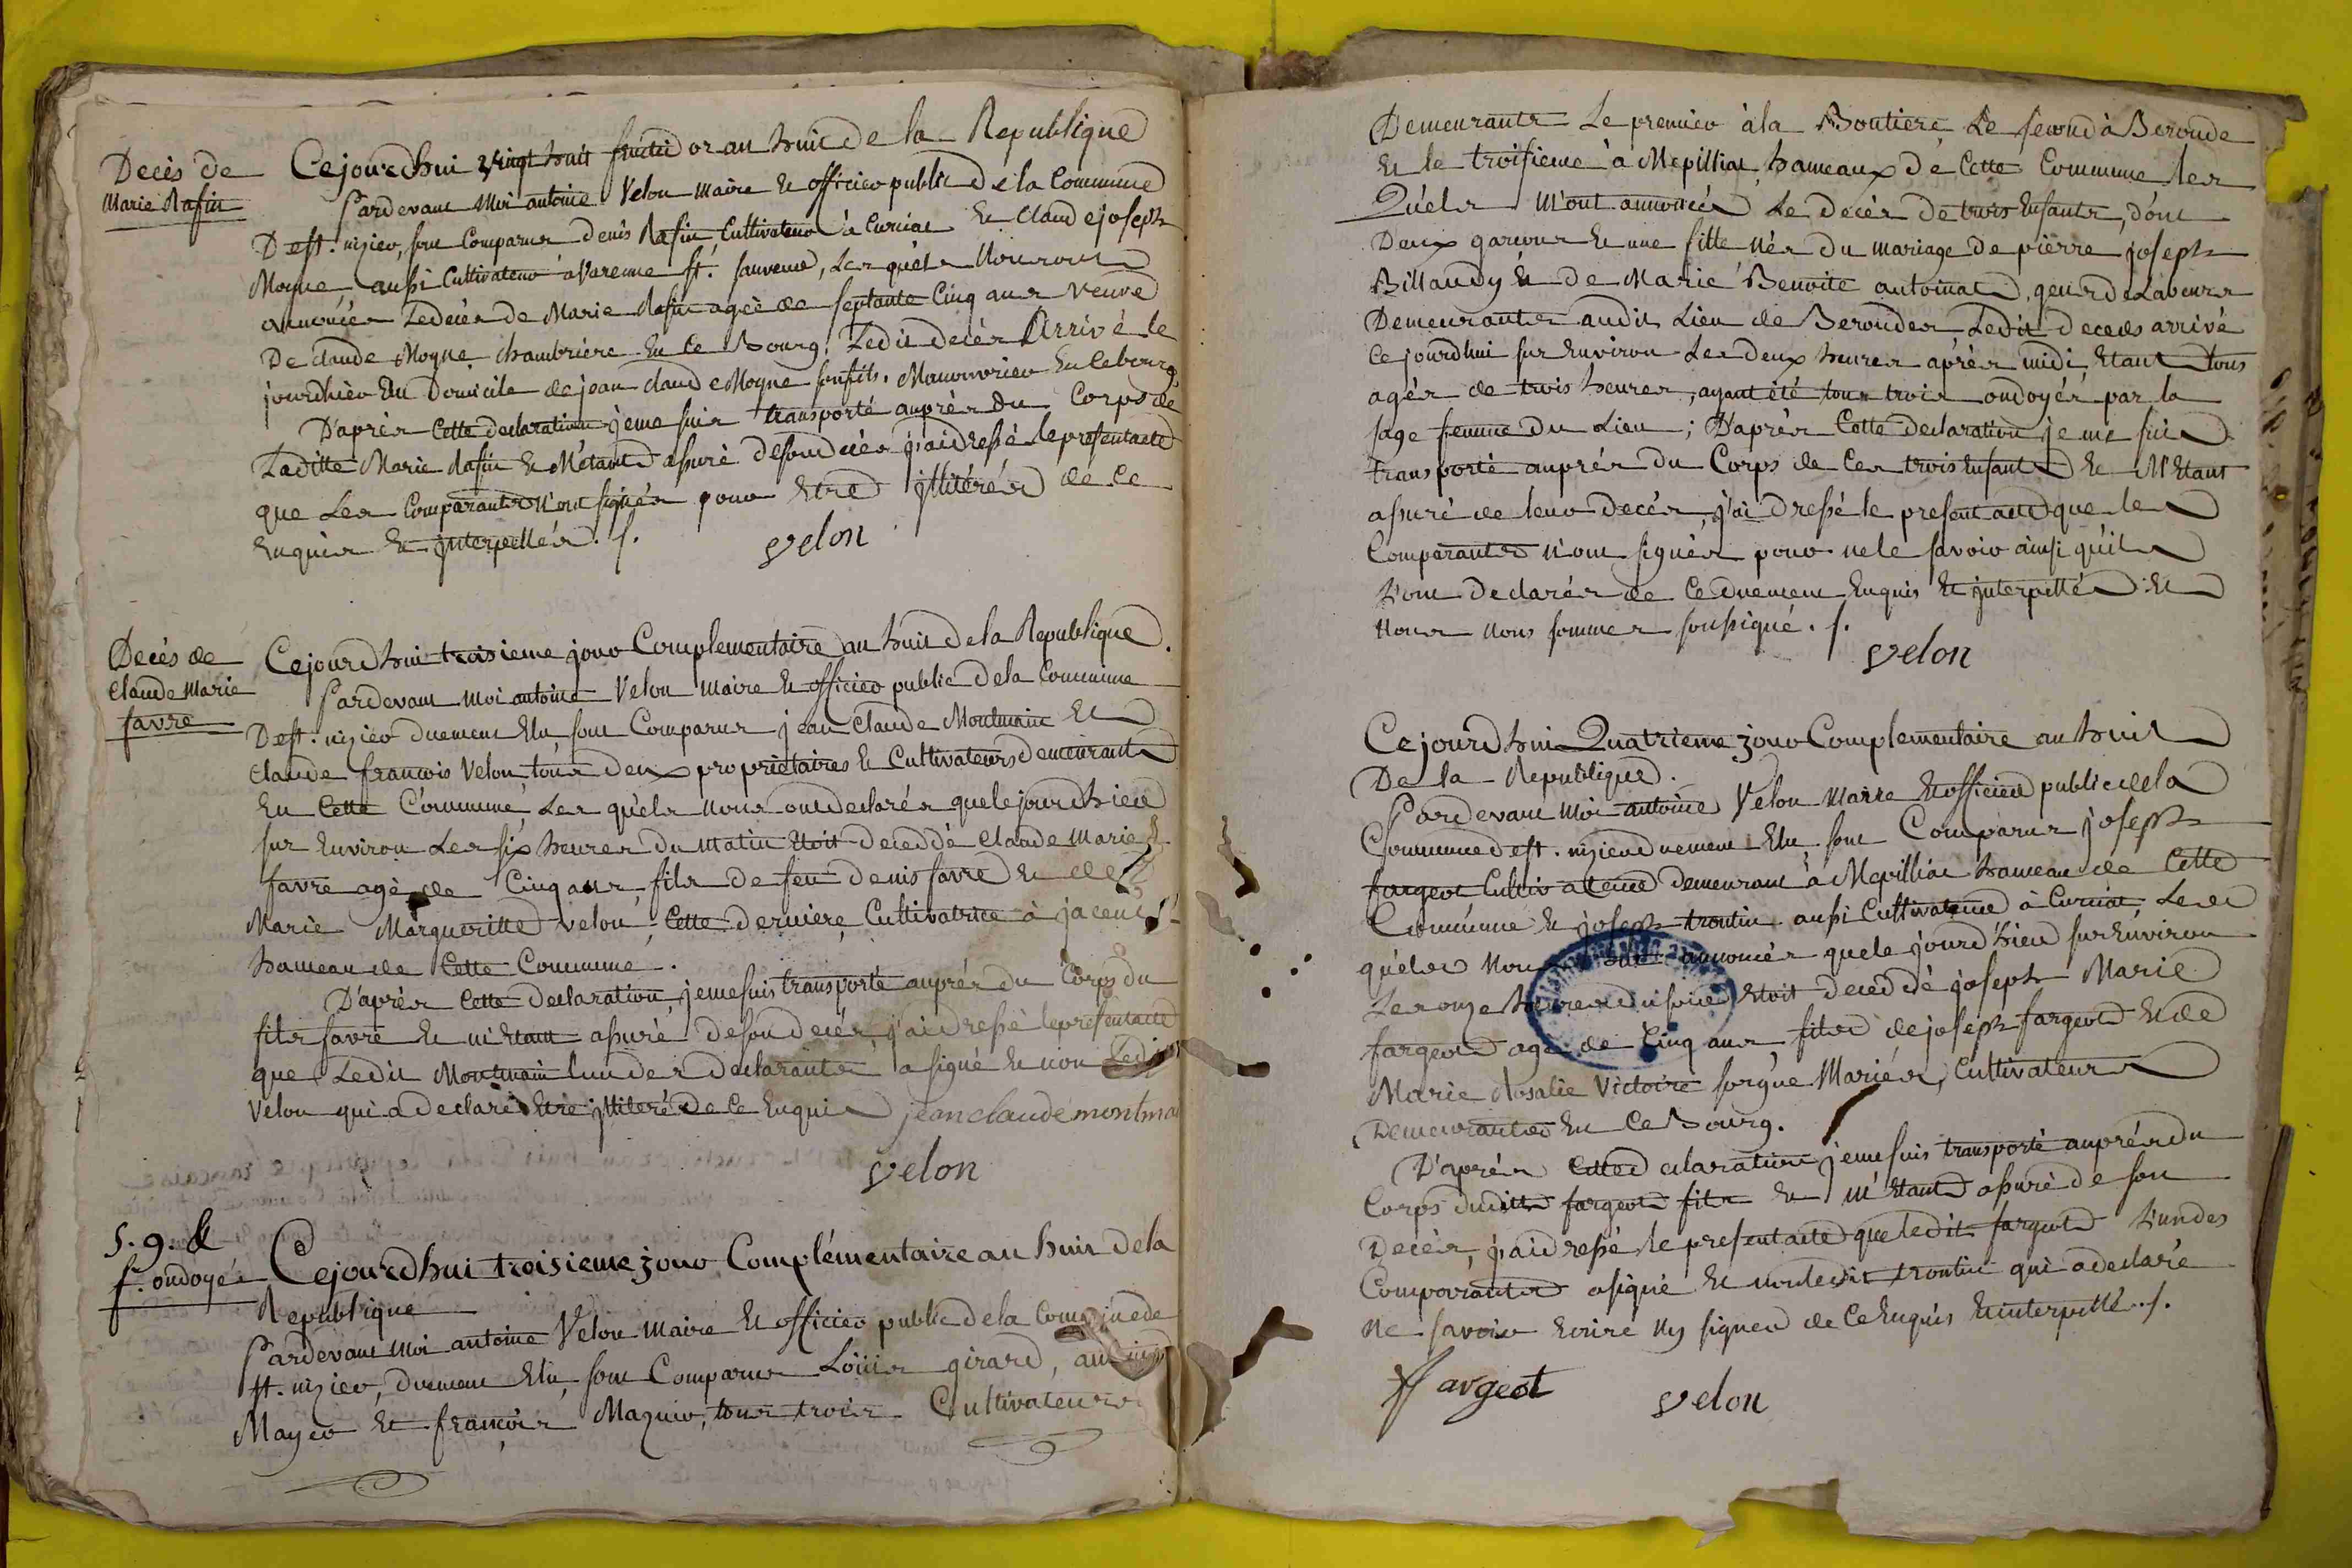 Decès de
Marie Rafin
Cejourdhui vingt huit fructidor an huit de la Republique
Pardevant Moi antoine Velon maire et officier public de la Commune
De st. nizier, sont Comparus denis Rafin Cultivateur à Curciat et Claude joseph
Moyne aussi Cultivateur à Varenne st. sauveur, Les quels Nous ont
annoncés Le decès de Marie Rafin agée de septante Cinq ans veuve
De claude Moyne chambrière En Ce Bourg, Ledit decès Arrivé le
jourdhier Au Domicile de jean claude Moyne son fils, Manouvrier En Ce bourg,
D'après Cette declaration je me suis transporté auprès Du Corps de
Laditte Marie Rafin et M'étant assuré de son decès j'ai dressé le present acte
que Les Comparants n'ont signés pour Etre illitérés de Ce
Enquis Et interpellés ./.
Velon
Decès de
Claude Marie
favre
Cejourdhui troisieme jour Complementaire an huit de la Republique.
Pardevant moi antoine Velon maire et officier public de la Commune
De st. nizier duement Elu sont Comparus jean Claude Montmain Et
Claude francois Velon tous deux proprietaires et Cultivateurs demeurants
En Cette Commune, Les quels nous ont declarés que le jourdhier
sur Environ Les six heures du matin Etoit decedé Claude Marie
favre agé de Cinq ans fils de feu denis favre et de
Marie Margueritte Velon, Cette derniere Cultivatrice à
hameau de Cette Commune.
D'après Cette declaration, je me suis transporté auprès du Corps du
fils favre et m'etant assuré de son decès, j'ai dressé le present acte
que Ledit Montmain l'un des declarants a signé et non Ledit
Velon qui a declaré Etre illiteré de Ce Enquis jean claude montma
Velon
s. g. &
f. ondoyés
Cejourdhui troisieme jour Complémentaire an huit de la
Republique
Pardevant Moi antoine Velon maire Et officier public de la Commune de
st. nizier, duement Elu, sont Comparus Loüis girard,
Mayer Et françois Maznier, tous trois Cultivateurs
Demeurants Le premier à la Boutiere Le second à Beronde
Et le troisieme à Mepilliat, hameaux de Cette Commune les
Quels M'ont annoncés Le decès de trois Enfants, dont
Deux garcons Et une fille nés du mariage de pierre joseph
Billaudy Et de Marie Benoite autoinat, gens de Labeurs
Demeurants audit Lieu de Berondes Ledit decès arrivé
Ce jourdhui sur Environ Les deux heures après midi, Etant tous
agés de trois heures, ayant été tous trois ondoyés par la
sage femme du Lieu; D'après Cette declaration je me suis
transporté auprès du Corps de Ces trois Enfants Et M'Etant
assuré de leur decès, j'ai dressé le present acte que les
Comparants n'ont signés pour ne le savoir ainsi qu'ils
L'ont declarés de Ce duement Enquis Et interpellés Et
Nous nous sommes soussigné ./.
Velon
Cejourdhui Quatrieme jour Complementaire an huit
De la Republique.
Pardevant Moi antoine Velon Maire Et officier public de la
Commune de st. nizier duement Elu sont Comparus joseph
fargeot Cultivateur demeurant à Mepilliat hameau de Cette
Commune Et joseph trontin aussi Cultivateur à Curciat Les
quels Nous ont annoncés que le jourd'hier sur Environ
Les onze heures du soir Etoit decedé joseph Marie
fargeot agé de Cinq ans fils de joseph fargeot Et de
Marie Rosalie Victoire sorgue Mariés, Cultivateurs
Demeurants En Ce Bourg.
D'après Cette declaration je me suis transporté auprès du
Corps dudit fargeot fils Et m'Etant assuré de son
Decès, j'ai dressé le present acte que ledit fargeot L'un des
Comparants a signé Et non ledit trontin qui a declaré
ne savoir Ecrire Ny signer de Ce Enquis Et interpellé ./.
fargeot
Velon